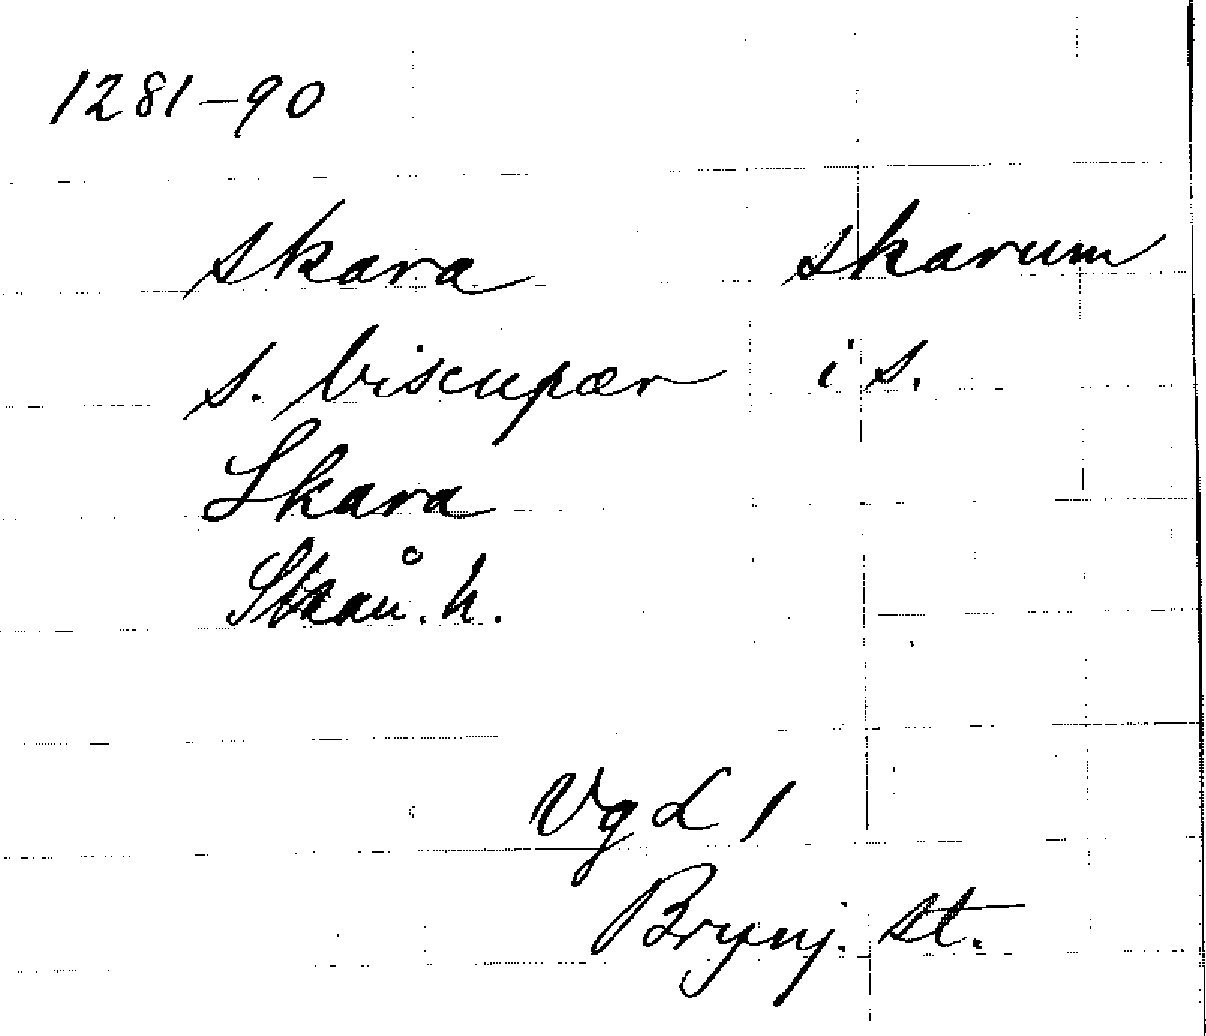 1281-90
skara skarum
s. biscupær i s.
Skara
Skån. h.
Vg L 1
Brynj. st.